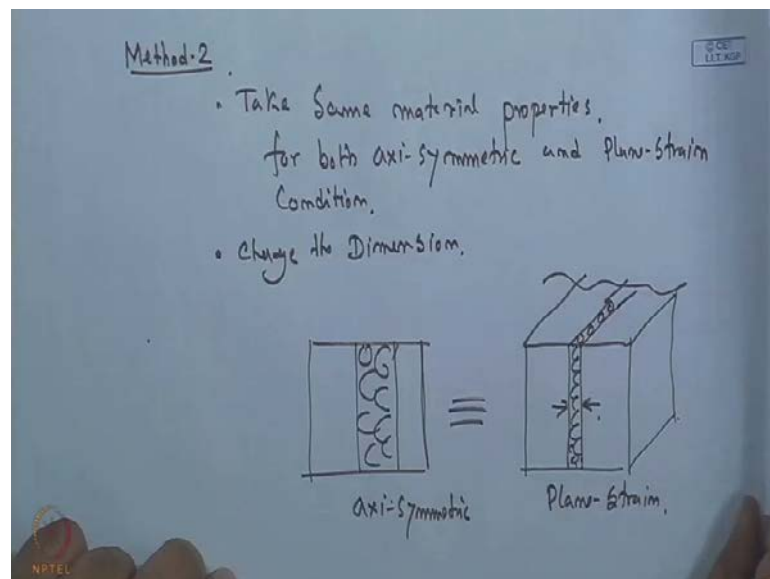 Method-2
© CET
I.I.T. KGP
• Take Same material properties.
for both axi-symmetric and Plane-Strain
Condition.
• Change the Dimension.
axi-symmetric
Plane-Strain.
NPTEL